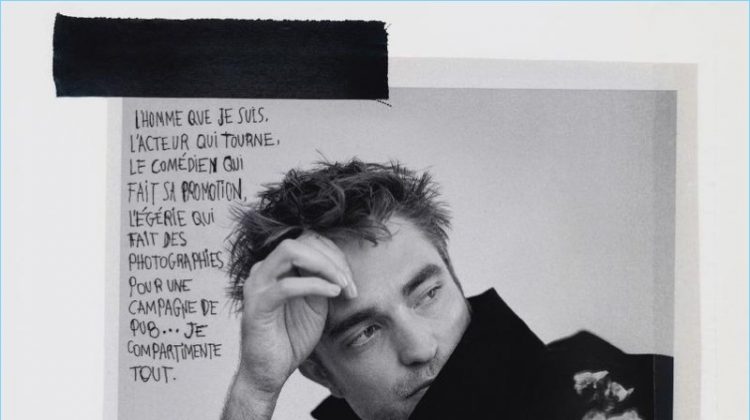 L'HOMME QUE JE SUIS,
L'ACTEUR QUI TOURNE,
LE COMÉDIEN QUI
FAIT SA PROMOTION,
L'ÉGÉRIE QUI
FAIT DES
PHOTOGRAPHIES
POUR UNE
CAMPAGNE DE
PUB... JE
COMPARTIMENTE
TOUT.